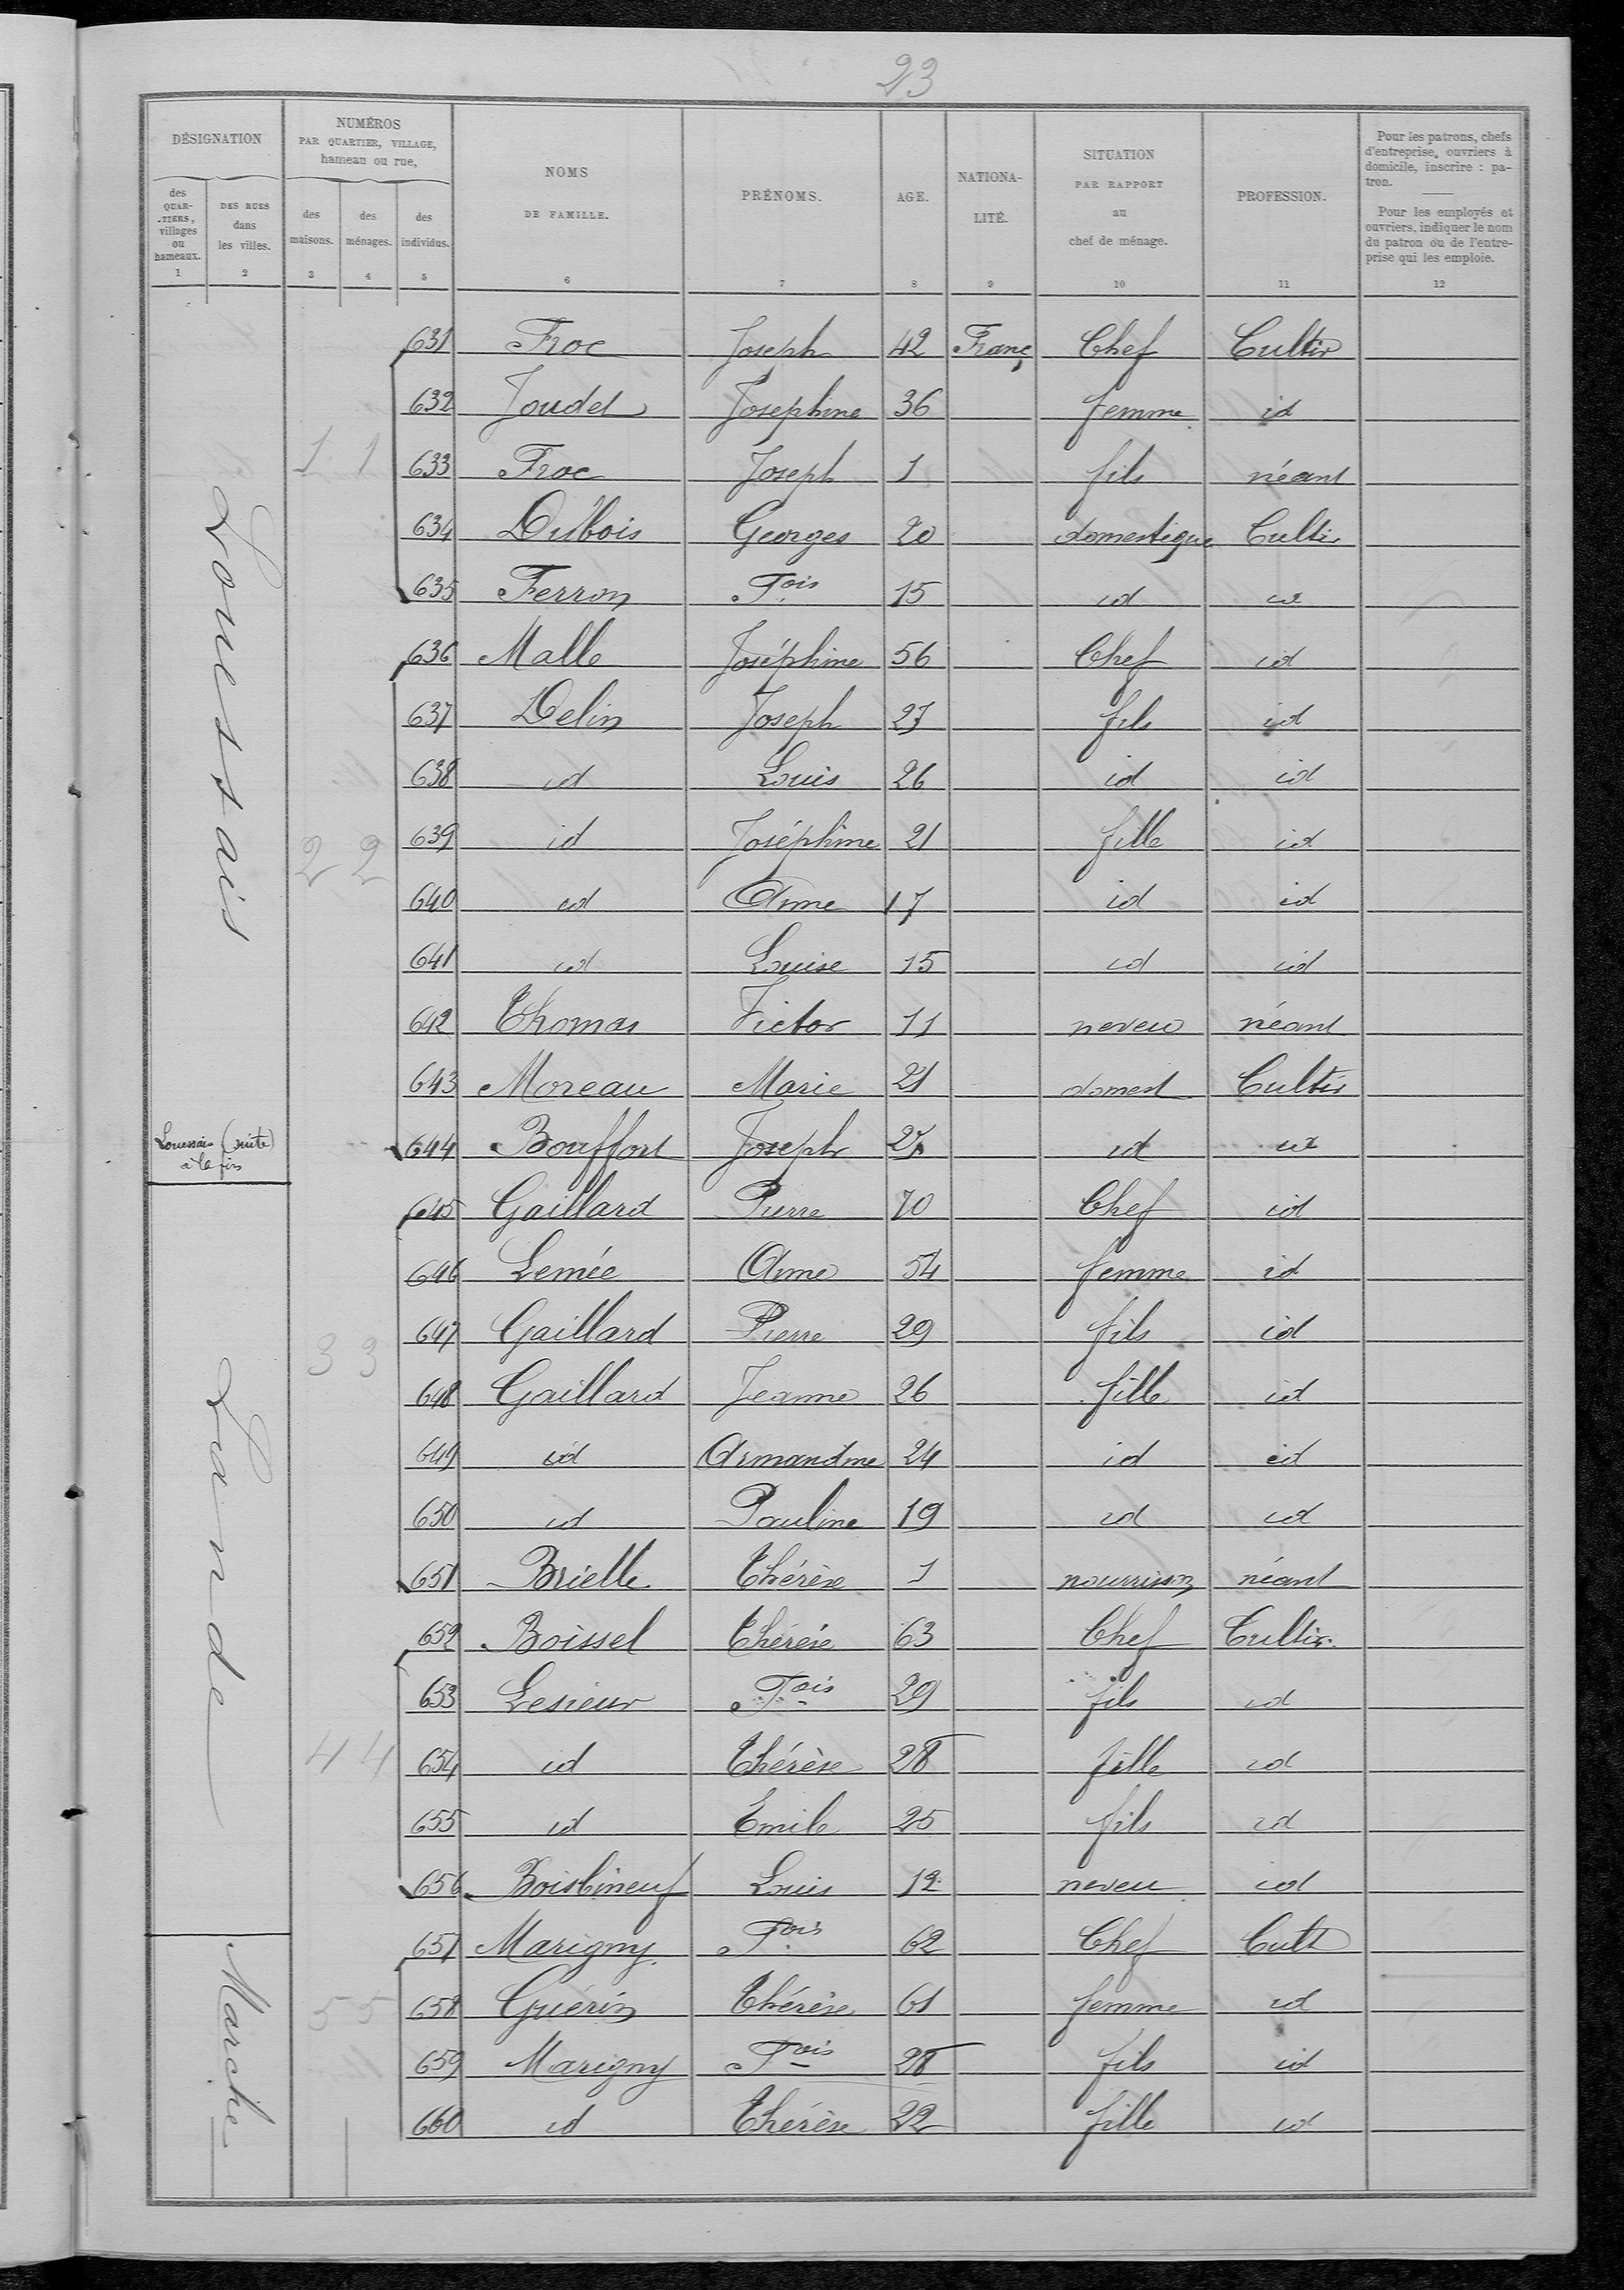 23
DÉSIGNATION
NUMÉROS
PAR QUARTIER, VILLAGE,
hameau ou rue,
NOMS
DE FAMILLE.
PRÉNOMS.
AGE.
NATIONA-
LITÉ.
SITUATION
PAR RAPPORT
au
chef de ménage.
PROFESSION.
Pour les patrons, chefs
d'entreprise, ouvriers à
domicile, inscrire : pa-
tron.
Pour les employés et
ouvriers, indiquer le nom
du patron ou de l'entre-
prise qui les emploie.
des
QUAR-
TIERS,
villages
ou
hameaux.
DES RUES
dans
les villes.
des
maisons.
des
ménages.
des
individus.
1 2 3 4 5 6 7 8 9 10 11 12
Louessais
631 Froc Joseph 42 Franç Chef Cultiv
632 Joudel Josephine 36 femme id
1 1 633 Froc Joseph 1 fils néant
634 Dubois Georges 20 domestique Cultiv
635 Ferron Fois 15 id id
636 Malle Joséphine 56 Chef id
637 Delin Joseph 27 fils id
638 id Louis 26 id id
2 2 639 id Joséphine 21 fille id
640 id Anne 17 id id
641 id Louise 15 id id
642 Thomas Victor 11 neveu néant
643 Moreau Marie 21 domest Cultiv
Louessais (suite)
à la fin
644 Bouffort Joseph id id
Lande
645 Gaillard Pierre 70 Chef id
646 Lemée Anne 54 femme id
3 3 647 Gaillard Pierre 29 fils id
648 Gaillard Jeanne 26 fille id
649 id Armandine 24 id id
650 id Pauline 19 id id
651 Brielle Thérèse 1 nourrisson néant
652 Boissel Thérèse 63 Chef Cultiv.
653 Lesieur Fois 29 fils id
4 4 654 id Thérèse 28 fille id
655 id Emile 25 fils id
656 Boisbineuf Louis 12 neveu id
Marche
657 Marigny Fois 62 Chef Cult
5 5 658 Guérin Thérèse 61 femme id
659 Marigny Fois 28 fils id
660 id Thérèse 22 fille id